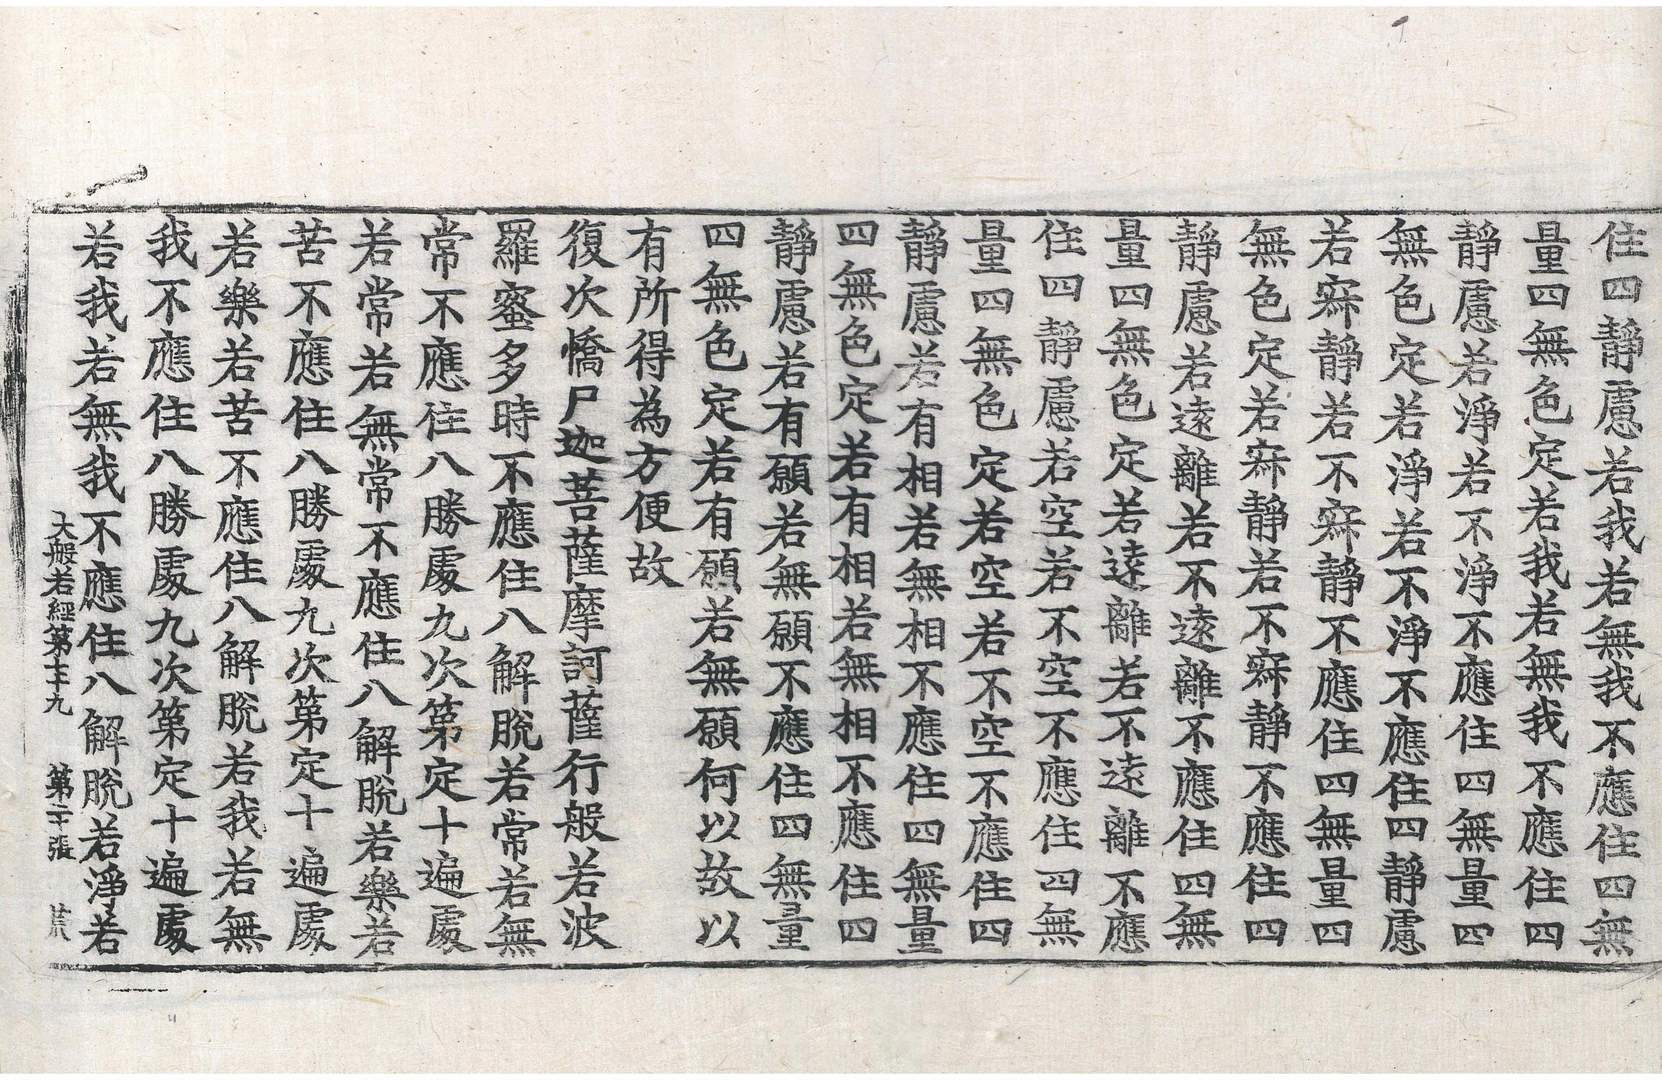 住四靜慮若我若無我不應住四無
量四無色定若我若無我不應住四
靜慮若淨若不淨不應住四無量四
無色定若淨若不淨不應住四靜慮
若寂靜若不寂靜不應住四無量四
無色定若寂靜若不寂靜不應住四
靜慮若遠離若不遠離不應住四無
量四無色定若遠離若不遠離不應
住四靜慮若空若不空不應住四無
量四無色定若空若不空不應住四
靜慮若有相若無相不應住四無量
四無色定若有相若無相不應住四
靜慮若有願若無願不應住四無量
四無色定若有願若無願何以故以
有所得為方便故
復次憍尸迦菩薩摩訶薩行般若波
羅蜜多時不應住八解脫若常若無
常不應住八勝處九次第定十遍處
若常若無常不應住八解脫若樂若
苦不應住八勝處九次第定十遍處
若樂若苦不應住八解脫若我若無
我不應住八勝處九次第定十遍處
若我若無我不應住八解脫若淨若
大般若經第七十九 第二十張 荒